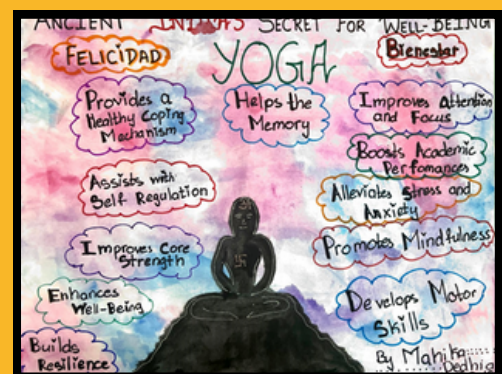 ANCIENT INDIA'S SECRET FOR WELL-BEING
YOGA
FELICIDAD
Bienestar
Provides a
Healthy Coping
Mechanism
Helps the
Memory
Improves Attention
and Focus
Boosts Academic
Perfomances
Assists with
Self Regulation
Alleviates Stress and
Anxiety
Improves Core
Strength
Promotes Mindfulness
Enhances
Well-Being
Develops Motor
Skills
Builds
Resilience
By Mahika
Dedhia